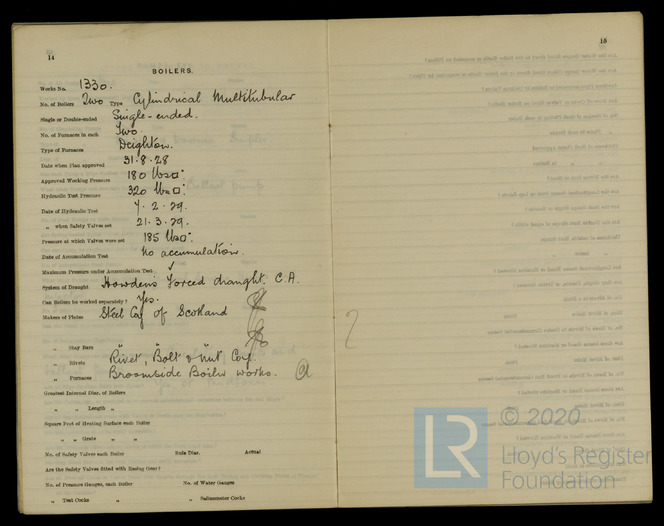 14
BOILERS.
Works No. 1330.
No. of Boilers Two Type Cylindrical Multitubular
Single or Double-ended Single-ended.
No. of Furnaces in each Two.
Type of Furnaces Deighton.
Date when Plan approved 31.8.28
Approved Working Pressure 180 lbs□"
Hydraulic Test Pressure 320 lbs□"
Date of Hydraulic Test 7.2.29.
„ when Safety Valves set 21.3.29.
Pressure at which Valves were set 185 lbs□"
Date of Accumulation Test No accumulation.
Maximum Pressure under Accumulation Test
System of Draught Howdens Forced draught. C.A.
Can Boilers be worked separately? Yes.
Makers of Plates Steel Coy of Scotland
„ Stay Bars " " "
„ Rivets Rivet, Bolt & Nut Coy.
„ Furnaces Broomside Boiler works.
Greatest Internal Diam. of Boilers
„ „ Length „
Square Feet of Heating Surface each Boiler
„ „ Grate „ „
No. of Safety Valves each Boiler Rule Diam. Actual
Are the Safety Valves fitted with Easing Gear?
No. of Pressure Gauges, each Boiler No. of Water Gauges
„ Test Cocks „ „ Salinometer Cocks
15
LR © 2020
Lloyd's Register
Foundation